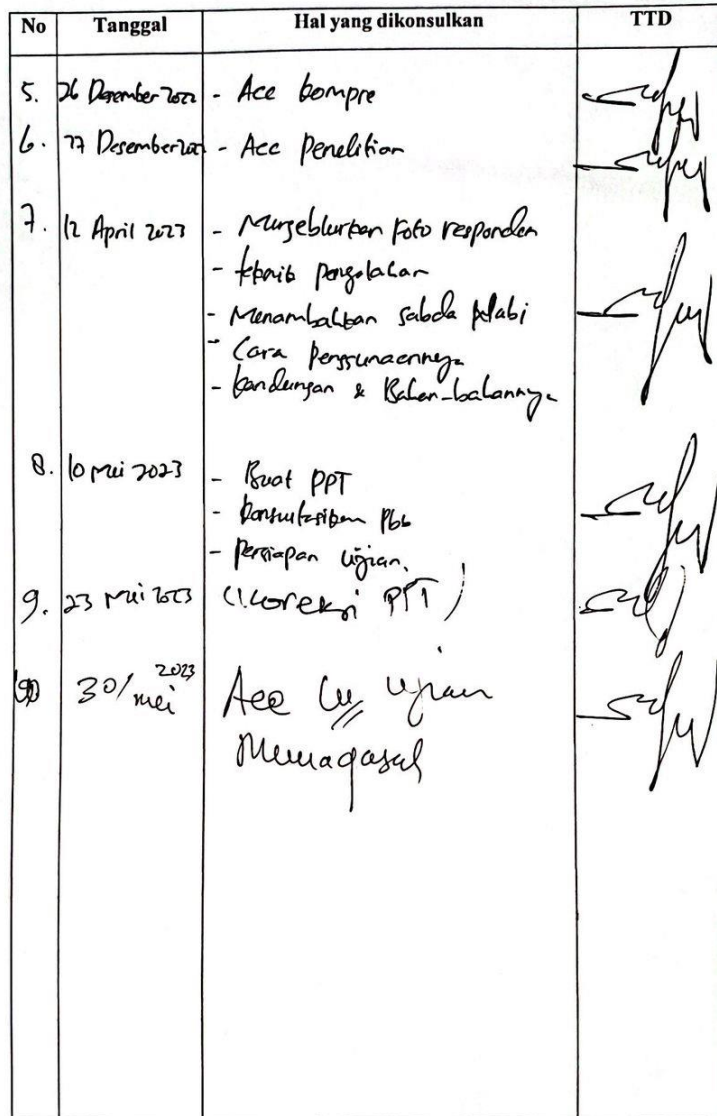 No Tanggal Hal yang dikonsulkan TTD
5. 26 Desember 2022 - Acc kompre
6. 27 Desember 2022 - Acc Penelitian
7. 12 April 2023 - Mengeblurkan Foto responden
- teknik pengolahan
- Menambahkan sabda Nabi
- Cara penggunaannya
- kandungan & Bahan-bahannya
8. 10 Mei 2023 - Buat PPT
- konsultasikan Pbb
- persiapan ujian.
9. 23 Mei 2023 (Koreksi PPT)
10 30/mei 2023 Acc ujian
Munaqasah